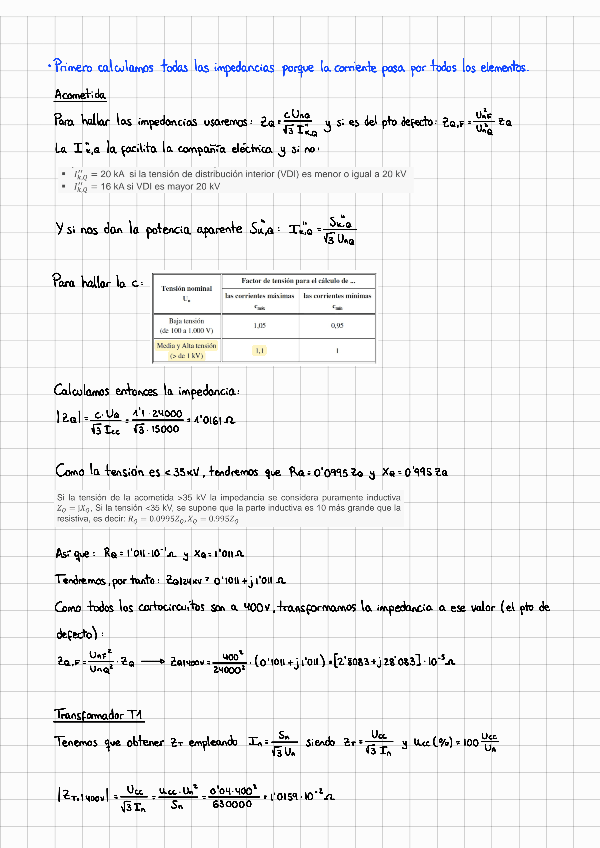 · Primero calculamos todas las impedancias porque la corriente pasa por todos los elementos.
Acometida
Para hallar las impedancias usaremos: Z_Q = c U_nQ / √3 I"_k,Q y si es del pto defecto: Z_Q,F = U²_nF / U²_nQ Z_Q
La I"_k,Q la facilita la compañía eléctrica y si no:
• I"_k,Q = 20 kA si la tensión de distribución interior (VDI) es menor o igual a 20 kV
• I"_k,Q = 16 kA si VDI es mayor 20 kV
Y si nos dan la potencia aparente S"_k,Q : I"_k,Q = S"_k,Q / √3 U_nQ
Para hallar la c:
Tensión nominal U_n
Factor de tensión para el cálculo de ...
las corrientes máximas c_máx
las corrientes mínimas c_mín
Baja tensión
(de 100 a 1.000 V)
1,05
0,95
Media y Alta tensión
(> de 1 kV)
1,1
1
Calculamos entonces la impedancia:
|Z_Q| = c·U_Q / √3 I_cc = 1'1·24000 / √3·15000 = 1'0161 Ω
Como la tensión es < 35 kV, tendremos que R_Q = 0'0995 Z_Q y X_Q = 0'995 Z_Q
Si la tensión de la acometida >35 kV la impedancia se considera puramente inductiva
Z_Q = jX_Q. Si la tensión <35 kV, se supone que la parte inductiva es 10 más grande que la
resistiva, es decir: R_Q = 0.0995Z_Q, X_Q = 0.995Z_Q
Así que: R_Q = 1'011·10⁻¹ Ω y X_Q = 1'011 Ω
Tendremos, por tanto: Z_Q|24kV = 0'1011 + j 1'011 Ω
Como todos los cortocircuitos son a 400V, transformamos la impedancia a ese valor (el pto de
defecto):
Z_Q,F = U_nF² / U_nQ² · Z_Q ⟶ Z_Q|400V = 400² / 24000² · (0'1011 + j 1'011) = [2'8083 + j 28'083]·10⁻⁵ Ω
Transformador T1
Tenemos que obtener Z_T empleando I_n = S_n / √3 U_n siendo Z_T = U_cc / √3 I_n y u_cc (%) = 100 U_cc / U_n
|Z_T,1 400V| = U_cc / √3 I_n = u_cc·U_n² / S_n = 0'04·400² / 630000 = 1'0159·10⁻² Ω